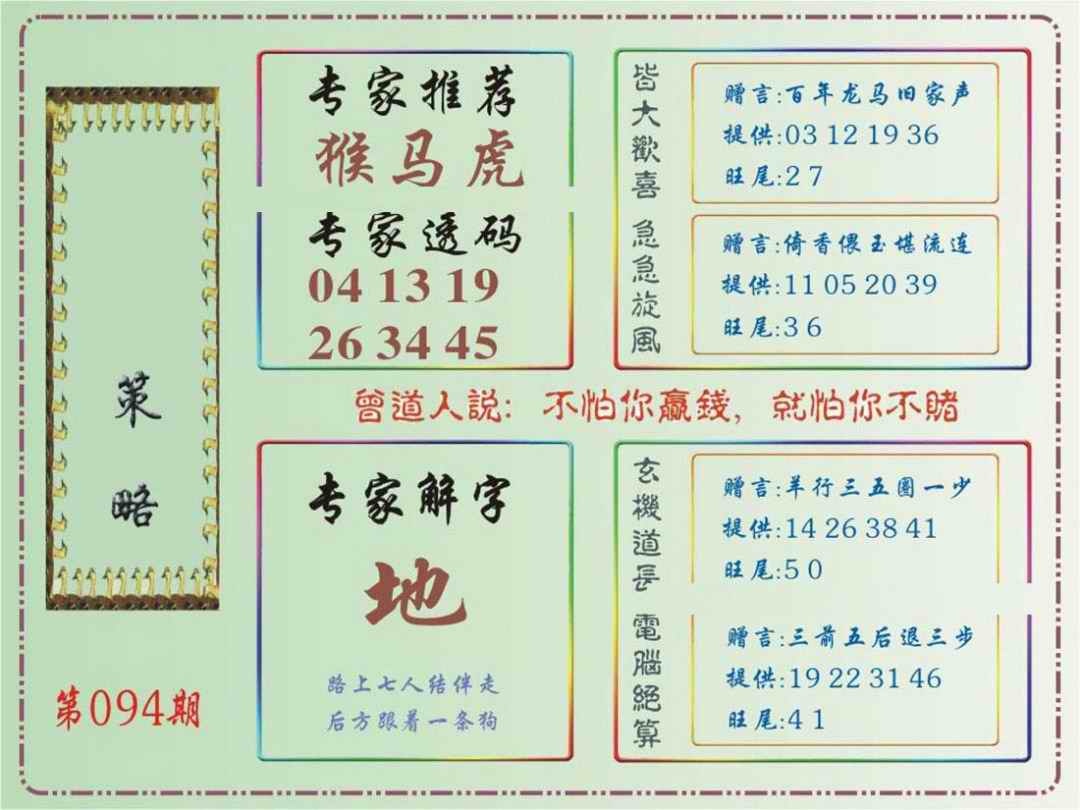 策略
第094期
专家推荐
猴马虎
专家透码
04 13 19
26 34 45
皆大歡喜
赠言:百年龙马旧家声
提供:03 12 19 36
旺尾:2 7
急急旋风
赠言:倚香偎玉堪流连
提供:11 05 20 39
旺尾:3 6
曾道人説: 不怕你贏錢, 就怕你不賭
专家解字
地
路上七人结伴走
后方跟着一条狗
玄機道長
赠言:羊行三五圈一少
提供:14 26 38 41
旺尾:5 0
電腦絕算
赠言:三前五后退三步
提供:19 22 31 46
旺尾:4 1